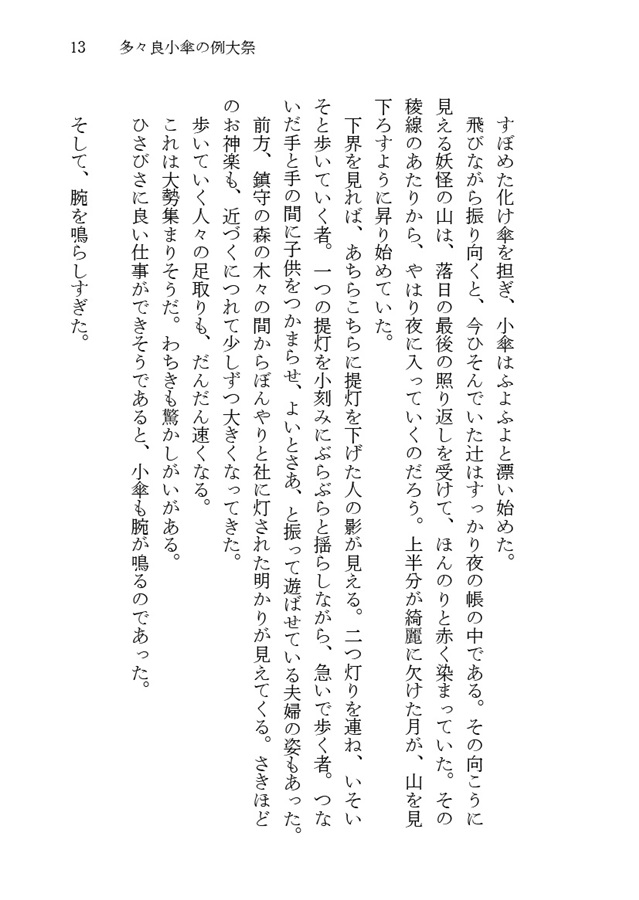 13 多々良小傘の例大祭
すぼめた化け傘を担ぎ、小傘はふよふよと漂い始めた。
飛びながら振り向くと、今ひそんでいた辻はすっかり夜の帳の中である。その向こうに
見える妖怪の山は、落日の最後の照り返しを受けて、ほんのりと赤く染まっていた。その
稜線のあたりから、やはり夜に入っていくのだろう。上半分が綺麗に欠けた月が、山を見
下ろすように昇り始めていた。
下界を見れば、あちらこちらに提灯を下げた人の影が見える。二つ灯りを連ね、いそい
そと歩いていく者。一つの提灯を小刻みにぶらぶらと揺らしながら、急いで歩く者。つな
いだ手と手の間に子供をつかまらせ、よいとさあ、と振って遊ばせている夫婦の姿もあった。
前方、鎮守の森の木々の間からぼんやりと社に灯された明かりが見えてくる。さきほど
のお神楽も、近づくにつれて少しずつ大きくなってきた。
歩いていく人々の足取りも、だんだん速くなる。
これは大勢集まりそうだ。わちきも驚かしがいがある。
ひさびさに良い仕事ができそうであると、小傘も腕が鳴るのであった。
そして、腕を鳴らしすぎた。